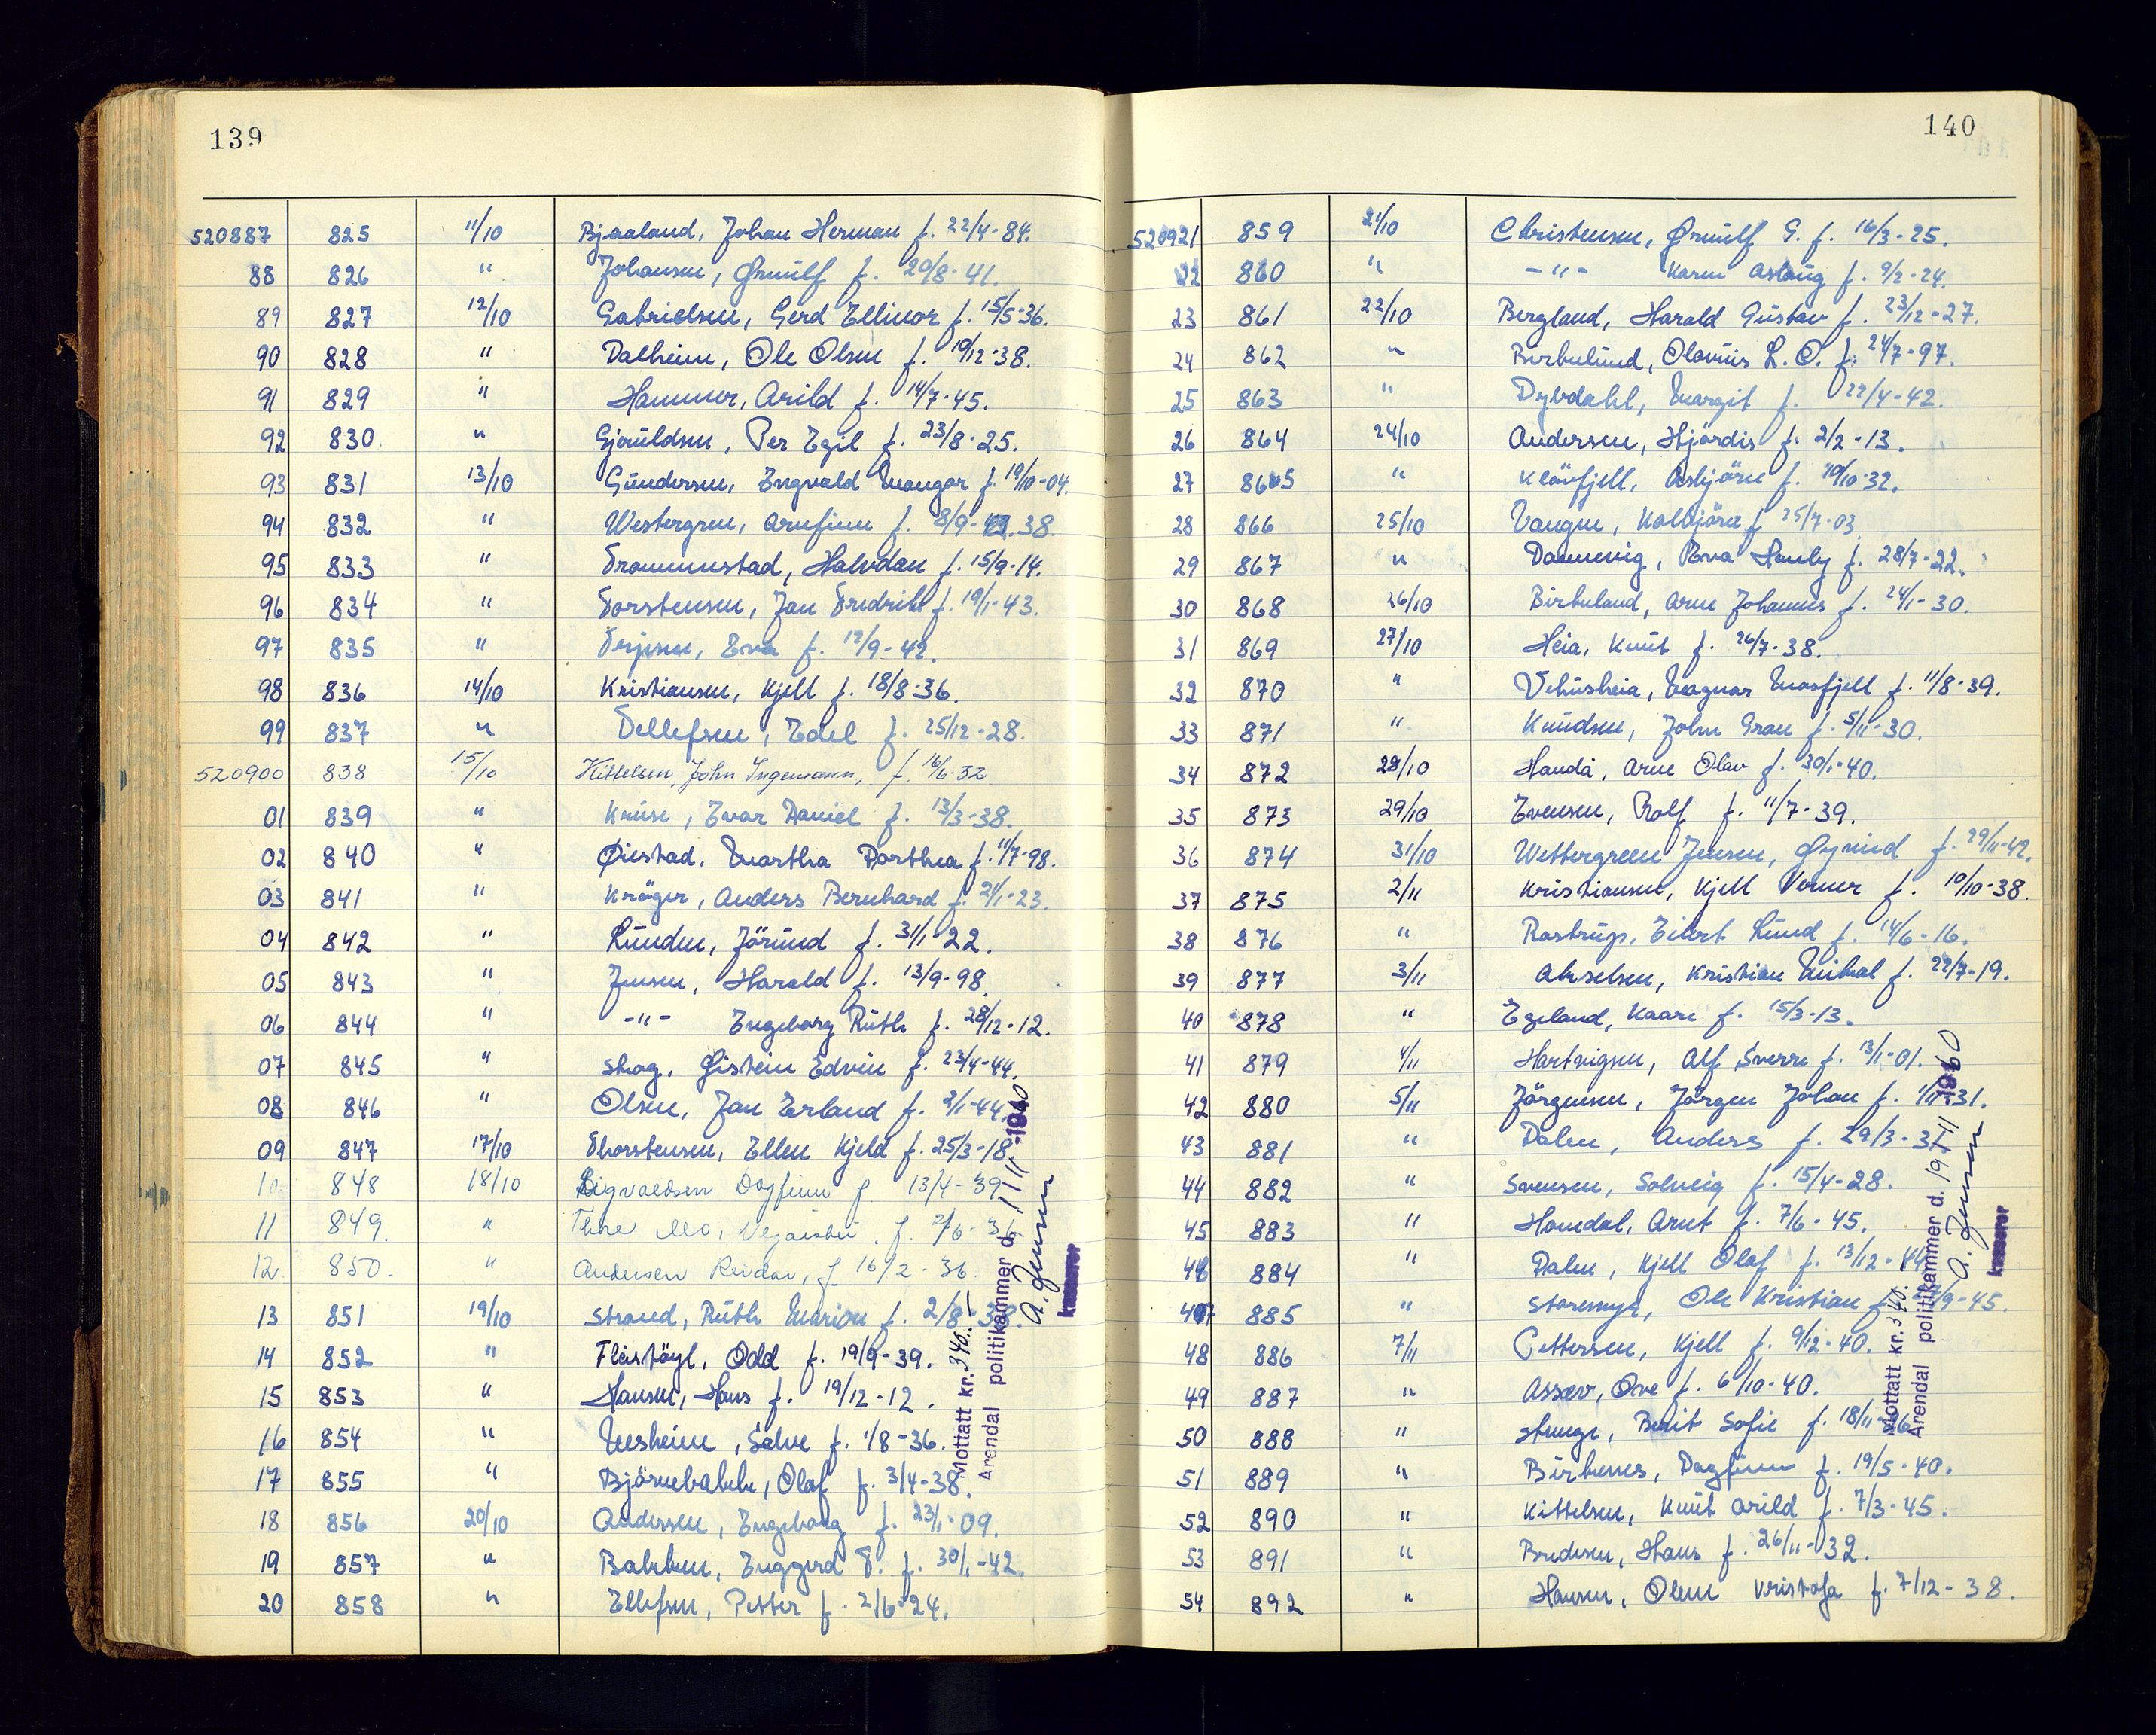 139
520887 825 11/10 Bjaaland, Johan Herman f. 22/4-84.
88 826 " Johansen, Ørnulf f. 20/8-41.
89 827 12/10 Gabrielsen, Gerd Ellinor f. 15/5-36.
90 828 " Dalheim, Ole Olsen f. 19/12-38.
91 829 " Hammer, Arild f. 14/7-45.
92 830. " Gjeruldsen, Per Egil f. 23/8-25.
93 831 13/10 Gundersen, Engvald Mangor f. 19/10-04.
94 832 " Westergren, Arnfinn f. 8/9-38.
95 833 " Trommestad, Halvdan f. 15/9-14.
96 834 " Torstensen, Jan Fredrik f. 19/1-43.
97 835 " Terjesen, Eva f. 12/9-42.
98 836 14/10 Kristiansen, Kjell f. 18/8-36.
99 837 " Tellefsen, Edel f. 25/12-28.
520900 838 15/10 Kittelsen, John Ingemann, f. 16/6-32
01 839 " Kruse, Evar Daniel f. 13/3-38.
02 840 " Øiestad, Martha Dorthea f. 11/7-98.
03 841 " Kröger, Anders Bernhard f. 2/1-23.
04 842 " Lunden, Jörund f. 31/1-22.
05 843 " Jensen, Harald f. 13/9-98.
06 844 " -"- Engeborg Ruth f. 28/12-12.
07 845 " Skog, Øistein Edvin f. 23/4-44.
08 846 " Olsen, Jan Erland f. 2/1-44.
09 847 17/10 Thorstensen, Ellen Kjeld f. 25/3-18
10 848 18/10 Sigvaldsen Dagfinn f. 13/4-39
11 849. " Mo, f. 2/6-36
12. 850. " Andersen Reidar, f. 16/2-36
13 851 19/10 Strand, Ruth Marion f. 2/8-38.
14 852 " Fleistöyl, Odd f. 19/9-39.
15 853 " Hansen, Hans f. 19/12-12.
16 854 " Nesheim, Salve f. 1/8-36.
17 855 " Björnebakke, Olaf f. 3/4-38.
18 856 20/10 Andersen, Engeborg f. 23/1-09.
19 857 " Bakken, Inggerd T. f. 30/1-42.
20 858 " Ellefsen, Petter f. 2/6-24.
Mottatt kr. 340.-
Arendal politikammer d. 1/11-1960
A. Jensen
kasserer
140
520921 859 21/10 Christensen, Ørnulf G. f. 16/3-25.
22 860 " -"- Karen Aslaug f. 9/2-24.
23 861 22/10 Bergland, Harald Gustav f. 23/12-27.
24 862 " Birkelund, Olavus L. O. f. 24/7-97.
25 863 " Dybdahl, Margit f. 22/4-42.
26 864 24/10 Andersen, Hjördis f. 2/2-13.
27 865 " Klövfjell, Asbjörn f. 10/10-32.
28 866 25/10 Vangen, Kolbjörn f 25/7-03
29 867 " Dannevig, Eva Hauly f. 28/7-22.
30 868 26/10 Birkeland, Arne Johannes f. 24/1-30.
31 869 27/10 Heia, Knut f. 26/7-38.
32 870 " Vehusheia, Magnar Mosfjell f. 11/8-39.
33 871 " Knudsen, John Gran f. 5/11-30.
34 872 28/10 Haudå, Arne Olav f. 30/1-40.
35 873 29/10 Evensen, Rolf f. 11/7-39.
36 874 31/10 Wettergreen Jensen, Øyvind f. 29/11-42.
37 875 2/11 Kristiansen, Kjell Verner f. 10/10-38.
38 876 " Rostrup, Eilert Lund f. 14/6-16.
39 877 3/11 Akselsen, Kristian Mikal f. 22/7-19.
40 878 " Egeland, Kaare f. 15/3-13.
41 879 4/11 Hartvigsen, Alf Sverre f. 13/1-01.
42 880 5/11 Jörgensen, Jörgen Johan f. 1/11-31.
43 881 " Dalen, Anders f. 29/3-31
44 882 " Svensen, Solveig f. 15/4-28.
45 883 " Homdal, Arnt f. 7/6-45.
46 884 " Dalen, Kjell Olaf f. 13/12-44
47 885 " Staremyr, Ole Kristian f. /9-45.
48 886 7/11 Pettersen, Kjell f. 9/12-40.
49 887 " Assev, Ove f. 6/10-40.
50 888 " Stenge, Berit Sofie f. 18/11-
51 889 " Birkenes, Dagfinn f. 19/5-40.
52 890 " Kittelsen, Knut Arild f. 7/3-45.
53 891 " Bredesen, Hans f. 26/11-32.
54 892 " Hansen, Olene Kristofa f. 7/12-38.
Mottatt kr. 340.
Arendal politikammer d. 19/11 1960
A. Jensen
kasserer